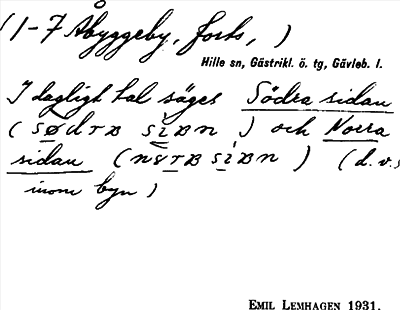 (1-7 Åbyggeby, forts, )
Hille sn, Gästrikl. ö. tg, Gävleb. l.
I dagligt tal säges Södra sidan
( och Norra
sidan ( ) (d.v.s
inom byn )
EMIL LEMHAGEN 1931.